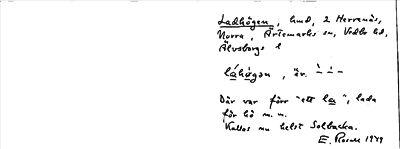 Ladhögen, hmd, 2 Herrenäs,
Norra, Artemarks sn, Vedbo hd,
Älvsborgs l
låhögen, är.
Där var förr "ett las", lada
för hö m.m.
Kallas nu helst Solbacka.
E. 1949